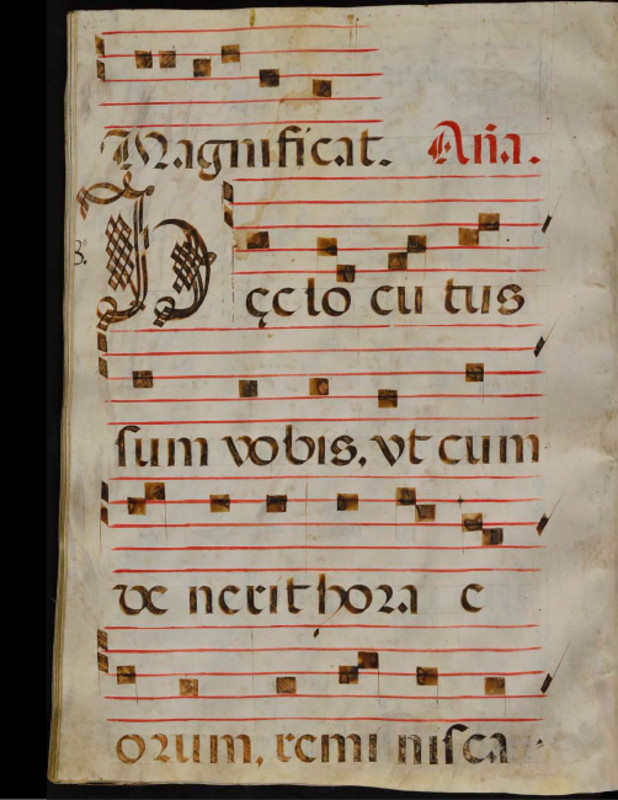 Magnificat. Aña.
8.
Hęc lo cu tus
sum vobis, vt cum
ve nerit hora e
orum, remi nisca